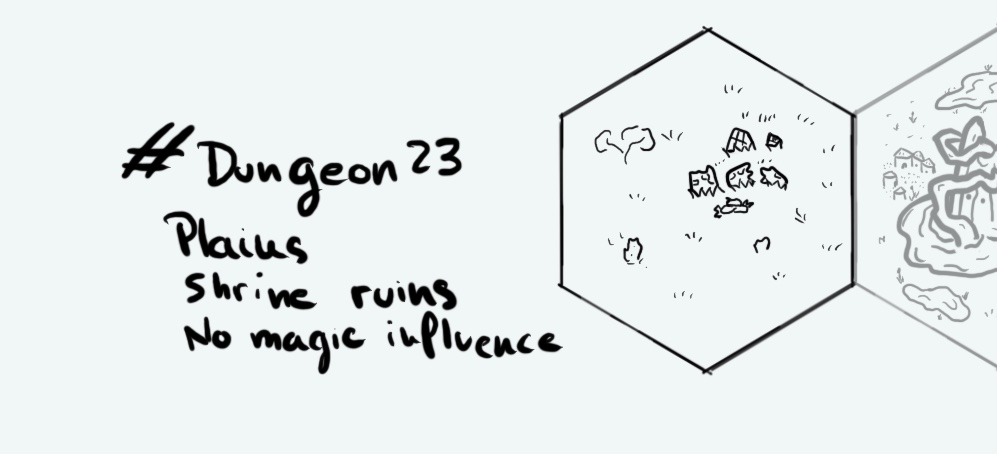 #Dungeon23
Plains
Shrine ruins
No magic influence